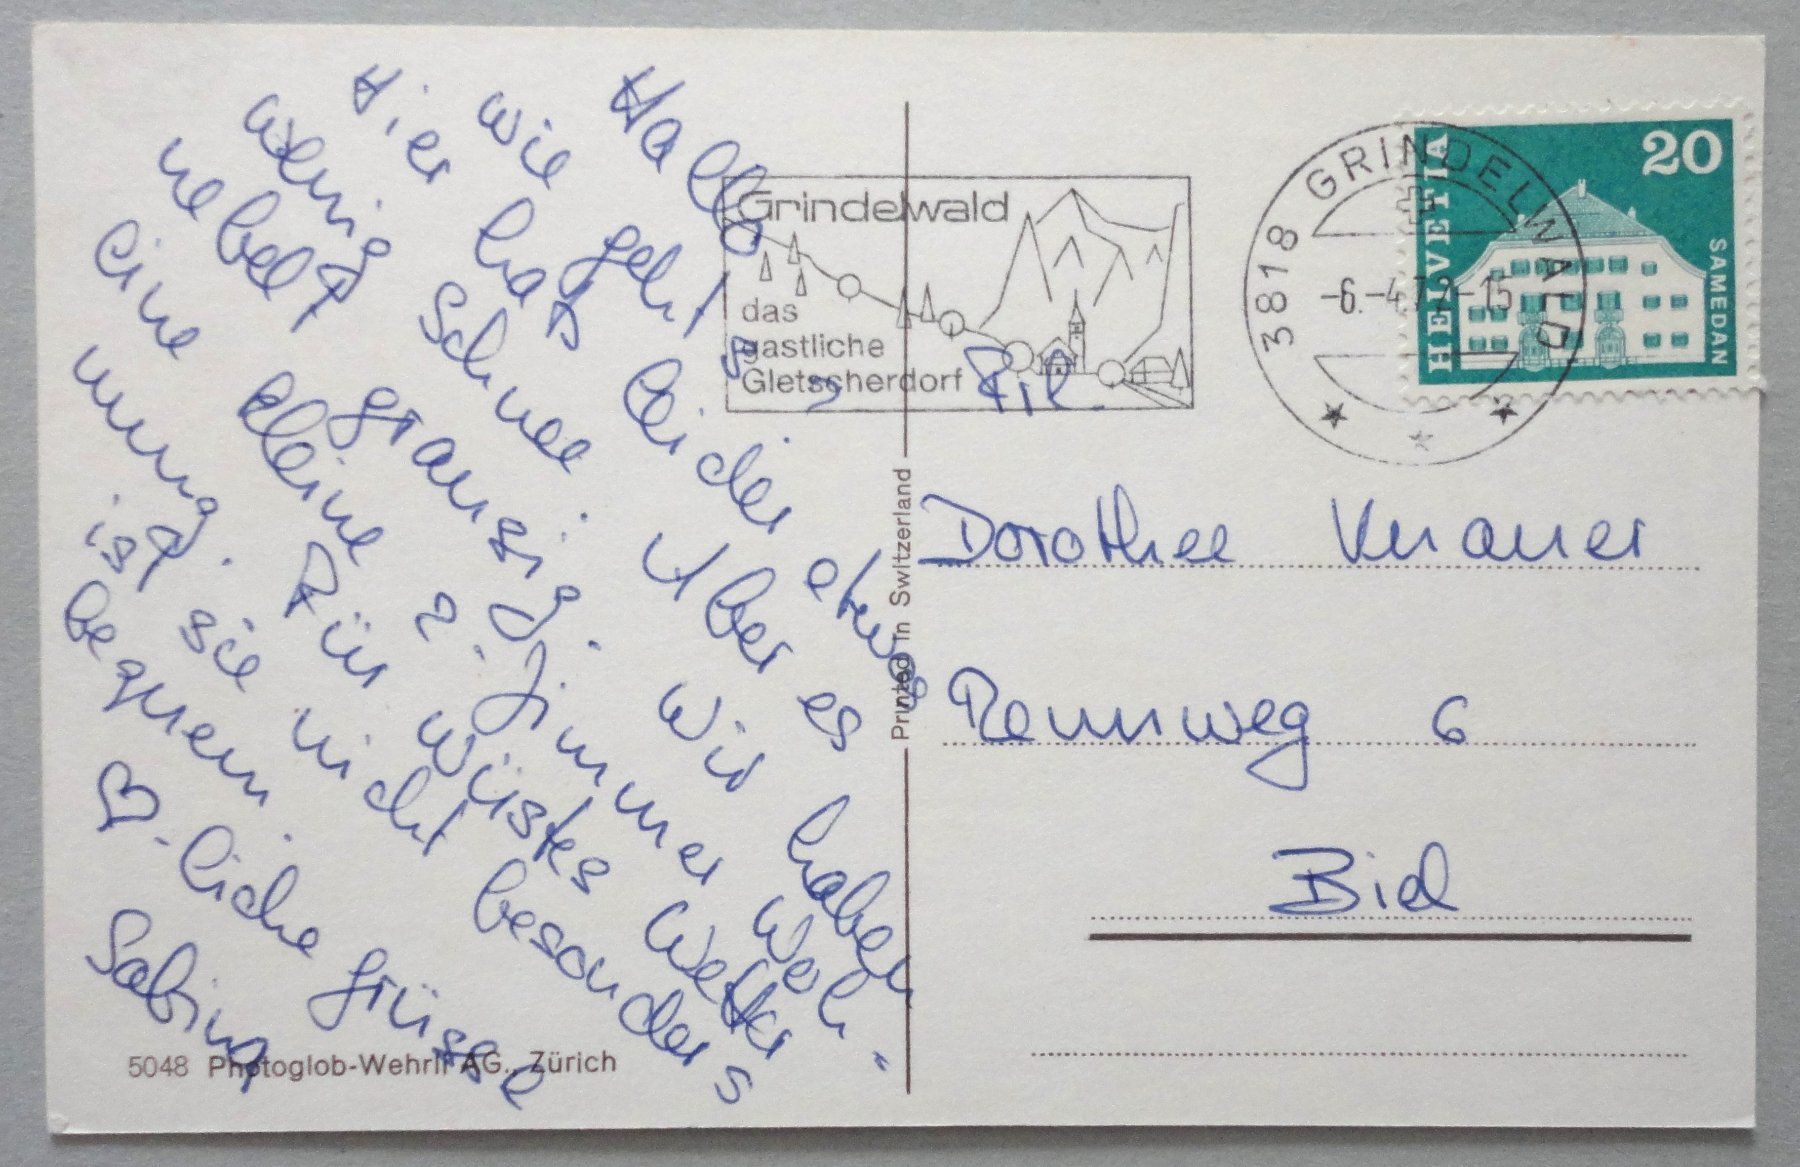 Hallo
wie geht's?
Hier hats leider etwas
wenig Schnee. Aber es
nebelt grausig. Wir haben
eine kleine 2. Zimmer Woh-
nung. Für wüstes Wetter
ist sie nicht besonders
bequem.
♡-liche Grüsse
Sabina
5048 Photoglob-Wehrli AG., Zürich
Printed in Switzerland
Grindelwald
das
gastliche
Gletscherdorf
3818 GRINDELWALD
-6.-4.72-15
HELVETIA
20
SAMEDAN
Frl.
Dorothee Knauer
Rennweg 6
Biel